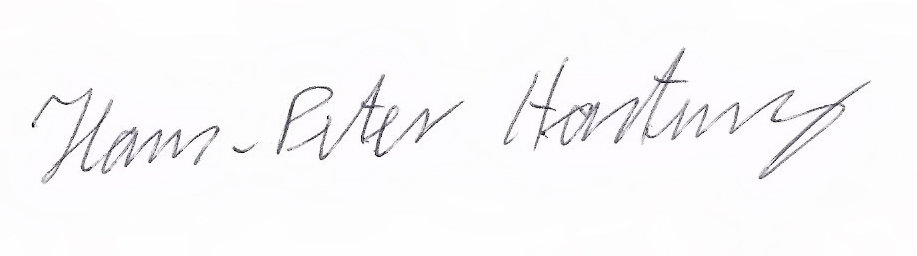 Hans-Peter Hartung